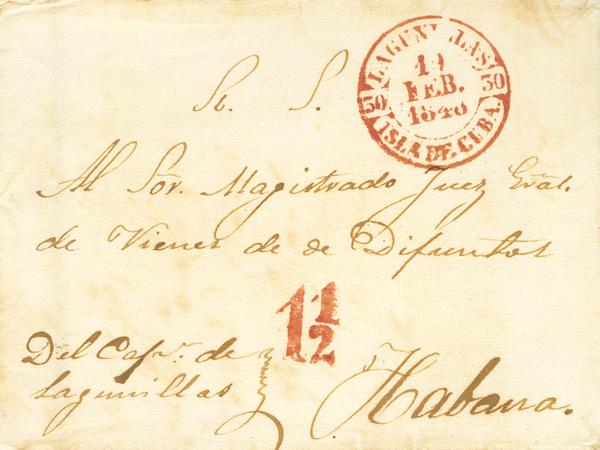 LAGUNILLAS
19
FEB.
1846
30 30
ISLA DE CUBA.
S. S.
Al Sor. Magistrado Juez Gral.
de Vienes de de Difuntos
1 1/2
Del Capn. de
Lagunillas
Habana.